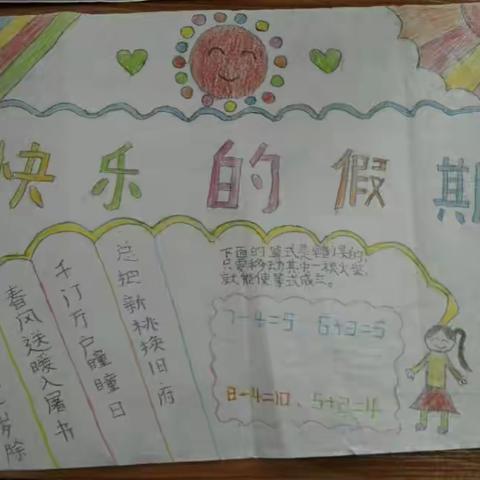 快乐的假期
总把新桃换旧府
千门万户瞳瞳日
春风送暖入屠书
岁除
下面的算式是错误的,
只要移动其中一根火柴,
就能使等式成立。
7-4=5 6+3=5
8-4=10、5+2=4